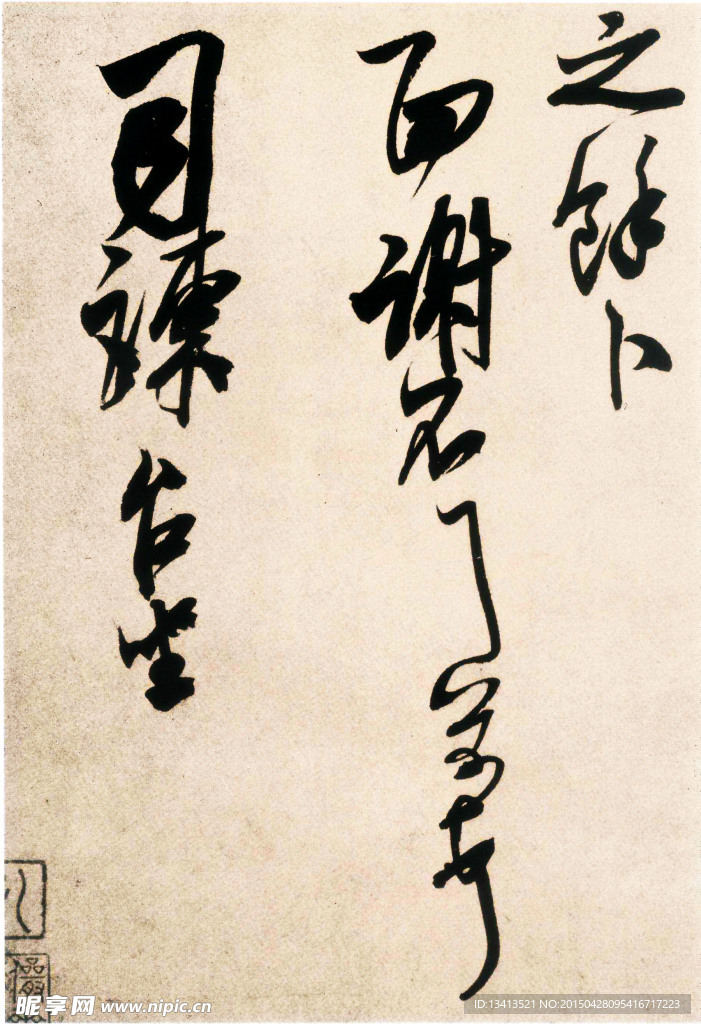 之餘卜
面謝不
司諫台坐
昵享网 www.nipic.cn
ID:13413521 NO:20150428095416717223